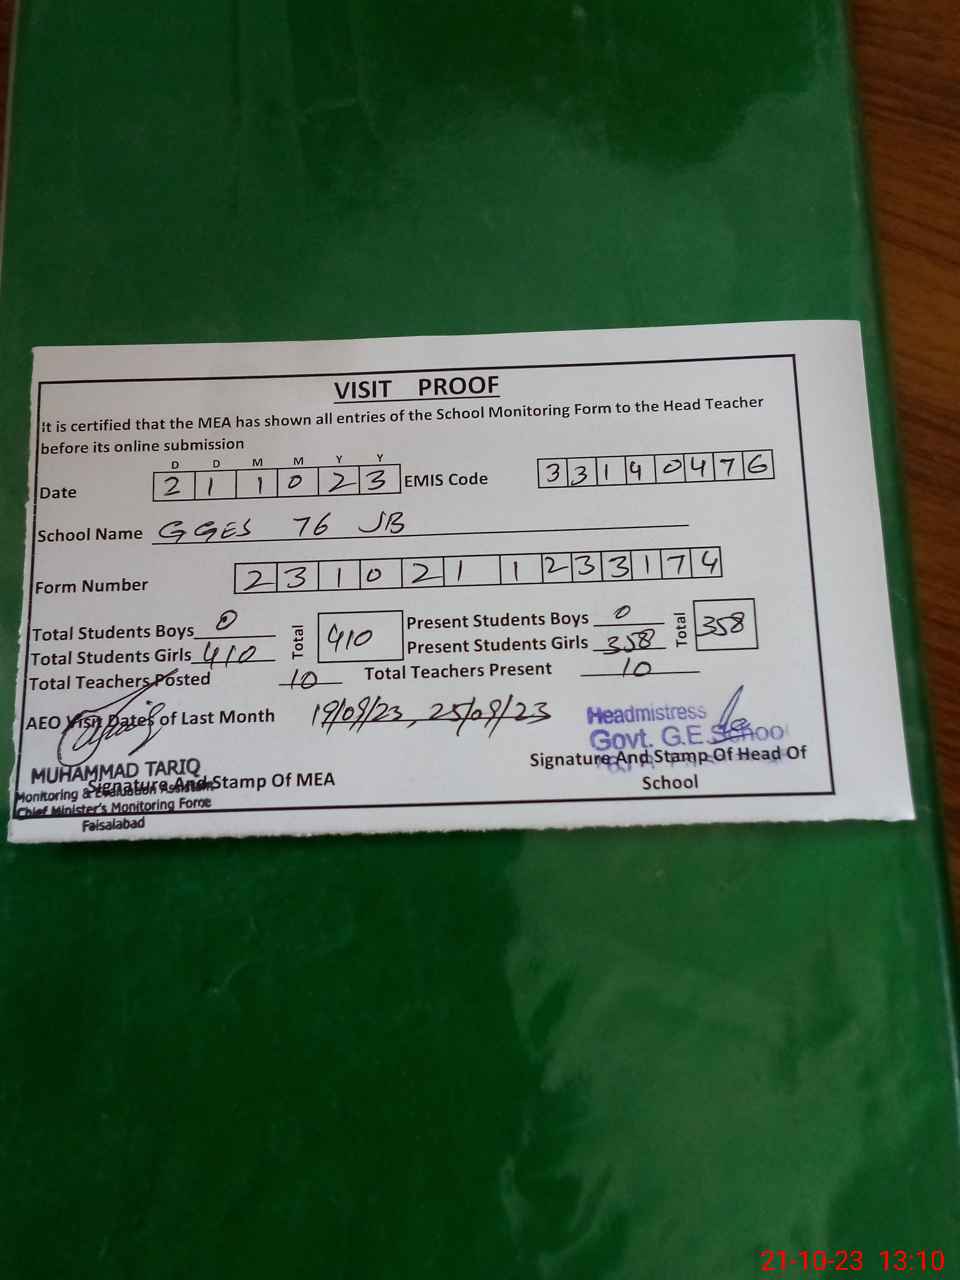 VISIT PROOF
It is certified that the MEA has shown all entries of the School Monitoring Form to the Head Teacher
before its online submission
D D M M Y Y
Date 2 1 1 0 2 3 EMIS Code 3 3 1 4 0 4 7 6
School Name GGES 76 JB
Form Number 2 3 1 0 2 1 1 2 3 3 1 7 4
Total Students Boys 0 Total 410 Present Students Boys 0 Total 358
Total Students Girls 410 Present Students Girls 358
Total Teachers Posted 10 Total Teachers Present 10
AEO Visit Dates of Last Month 19/09/23, 25/09/23
Headmistress
Govt. G.E. School
Signature And Stamp Of Head Of
School
MUHAMMAD TARIQ
Signature And Stamp Of MEA
Monitoring & Evaluation Assistant
Chief Minister's Monitoring Force
Faisalabad
21-10-23 13:10